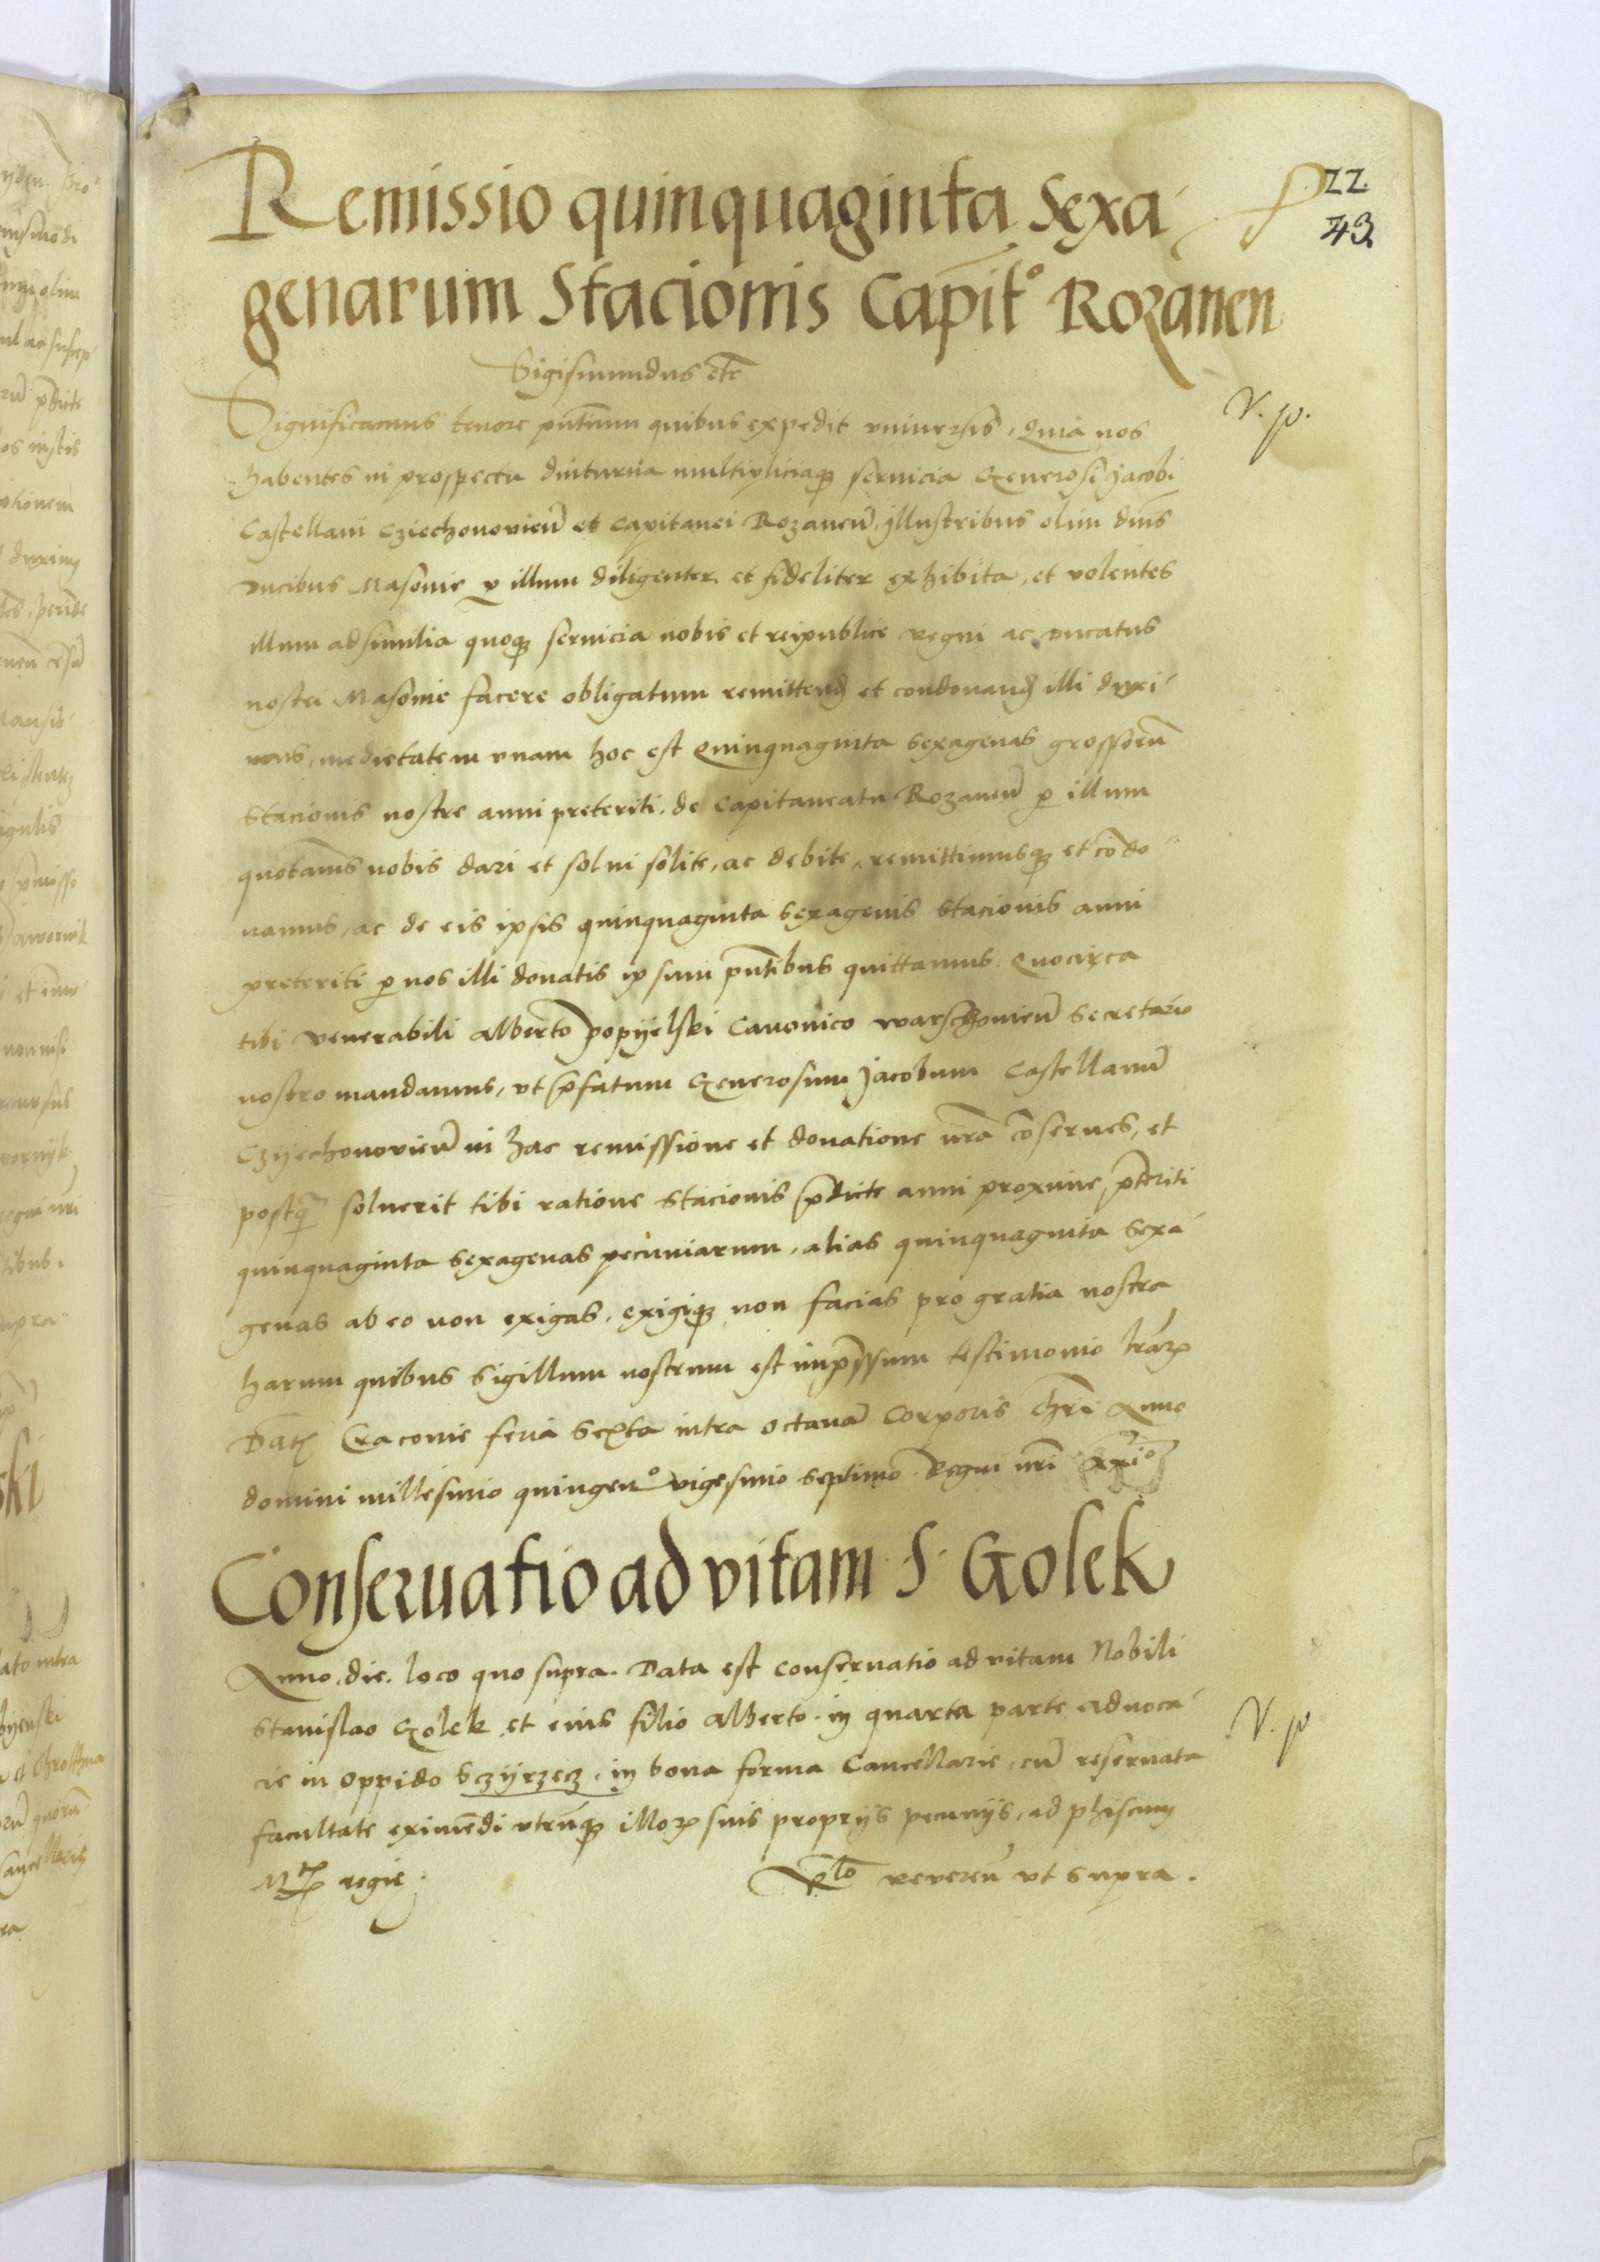 22.
43
Remissio quinquaginta Sexa-
genarum Stacionis Capit° Rozanen
Sigismundus etc
Significamus tenore pñtium quibus expedit vniuersis, Quia nos
habentes in prospectu diuturna multipliciaq; seruicia Generosi Jacobi
Castellani Cziechonovien̄ et Capitanei Rozanen̄, Illustribus olim dnis
Ducibus Masouie p illum diligenter et fideliter exhibita, et volentes
illum ad similia quoq; seruicia nobis et reipublice regni ac Ducatus
nostri Masouie facere obligatum remittend et condonand illi duxi-
mus, medietatem vnam hoc est Quinquaginta sexagenas grossorū
Stacionis nostre anni preteriti, de Capitaneatu Rozanen̄ p illum
quotannis nobis dari et solui solite, ac debite, remittimusq; et cōdo-
namus, ac de eis ipsis quinquaginta sexagenis stacionis anni
preteriti p nos illi donatis ipsum pñtibus quittamus Quocirca
tibi Venerabili Alberto Popyelski Canonico Warschouien̄ Secretario
nostro mandamus, vt p̄fatum Generosum Jacobum Castellanū
Czyechonovien̄ in hac remissione et donatione nrā cōserues, et
postq̄ soluerit tibi ratione stacionis p̄dicte anni proxime p̄teriti
quinquaginta sexagenas pecuniarum, alias quinquaginta sexa-
genas ab eo non exigas, exigiq; non facias pro gratia nostra
harum quibus Sigillum nostrum est imp̄ssum testimonio lrarꝫ
Datꝫ Cracouie feria Sexta intra octauā Corporis Chri Anno
domini millesimo quingen° vigesimo septimo Regni nri xxi°
V. p.
Conseruatio ad vitam S. Golek
Anno, die, loco quo supra. Data est conseruatio ad vitam Nobili
Stanislao Golek et eius filio Alberto in quarta parte aduoca-
cie in oppido Sczyrzecz, in bona forma Cancellarie, cū reseruata
facultate eximēdi vtrūq; illorꝫ suis proprijs pecunijs, ad phiscum
Mtꝫ regie.
Rlo reueren̄ vt supra.
V. p